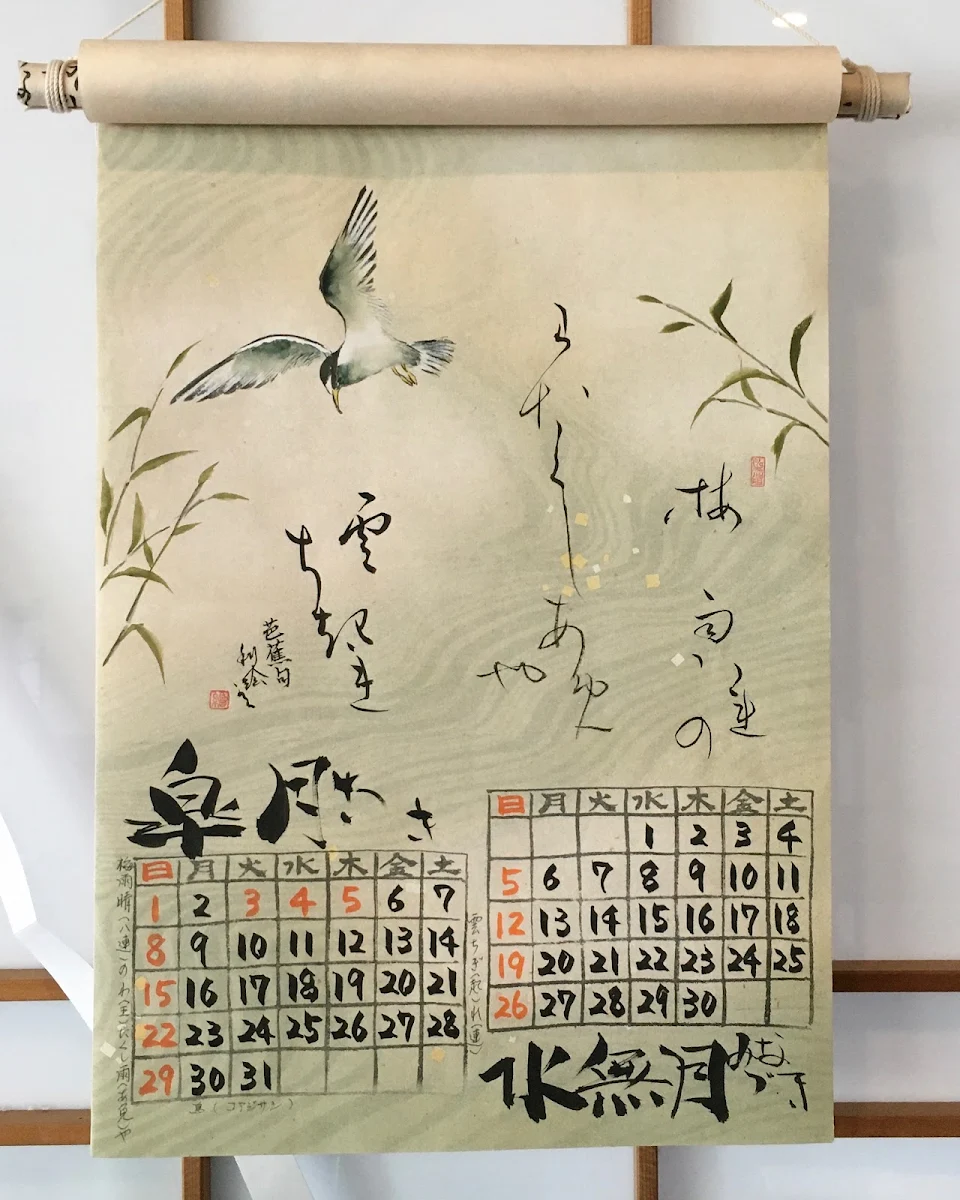 梅
雨八連の
王多くし
あ免
や
雲
ち起連
芭蕉句
皐月さつき
日 月 火 水 木 金 土
1 2 3 4 5 6 7
8 9 10 11 12 13 14
15 16 17 18 19 20 21
22 23 24 25 26 27 28
29 30 31
梅雨晴(八連)のわ(王)たくし雨(あ免)や
雲ちぎ(起)れ(連)
鳥(コアジサシ)
日 月 火 水 木 金 土
1 2 3 4
5 6 7 8 9 10 11
12 13 14 15 16 17 18
19 20 21 22 23 24 25
26 27 28 29 30
水無月みなづき